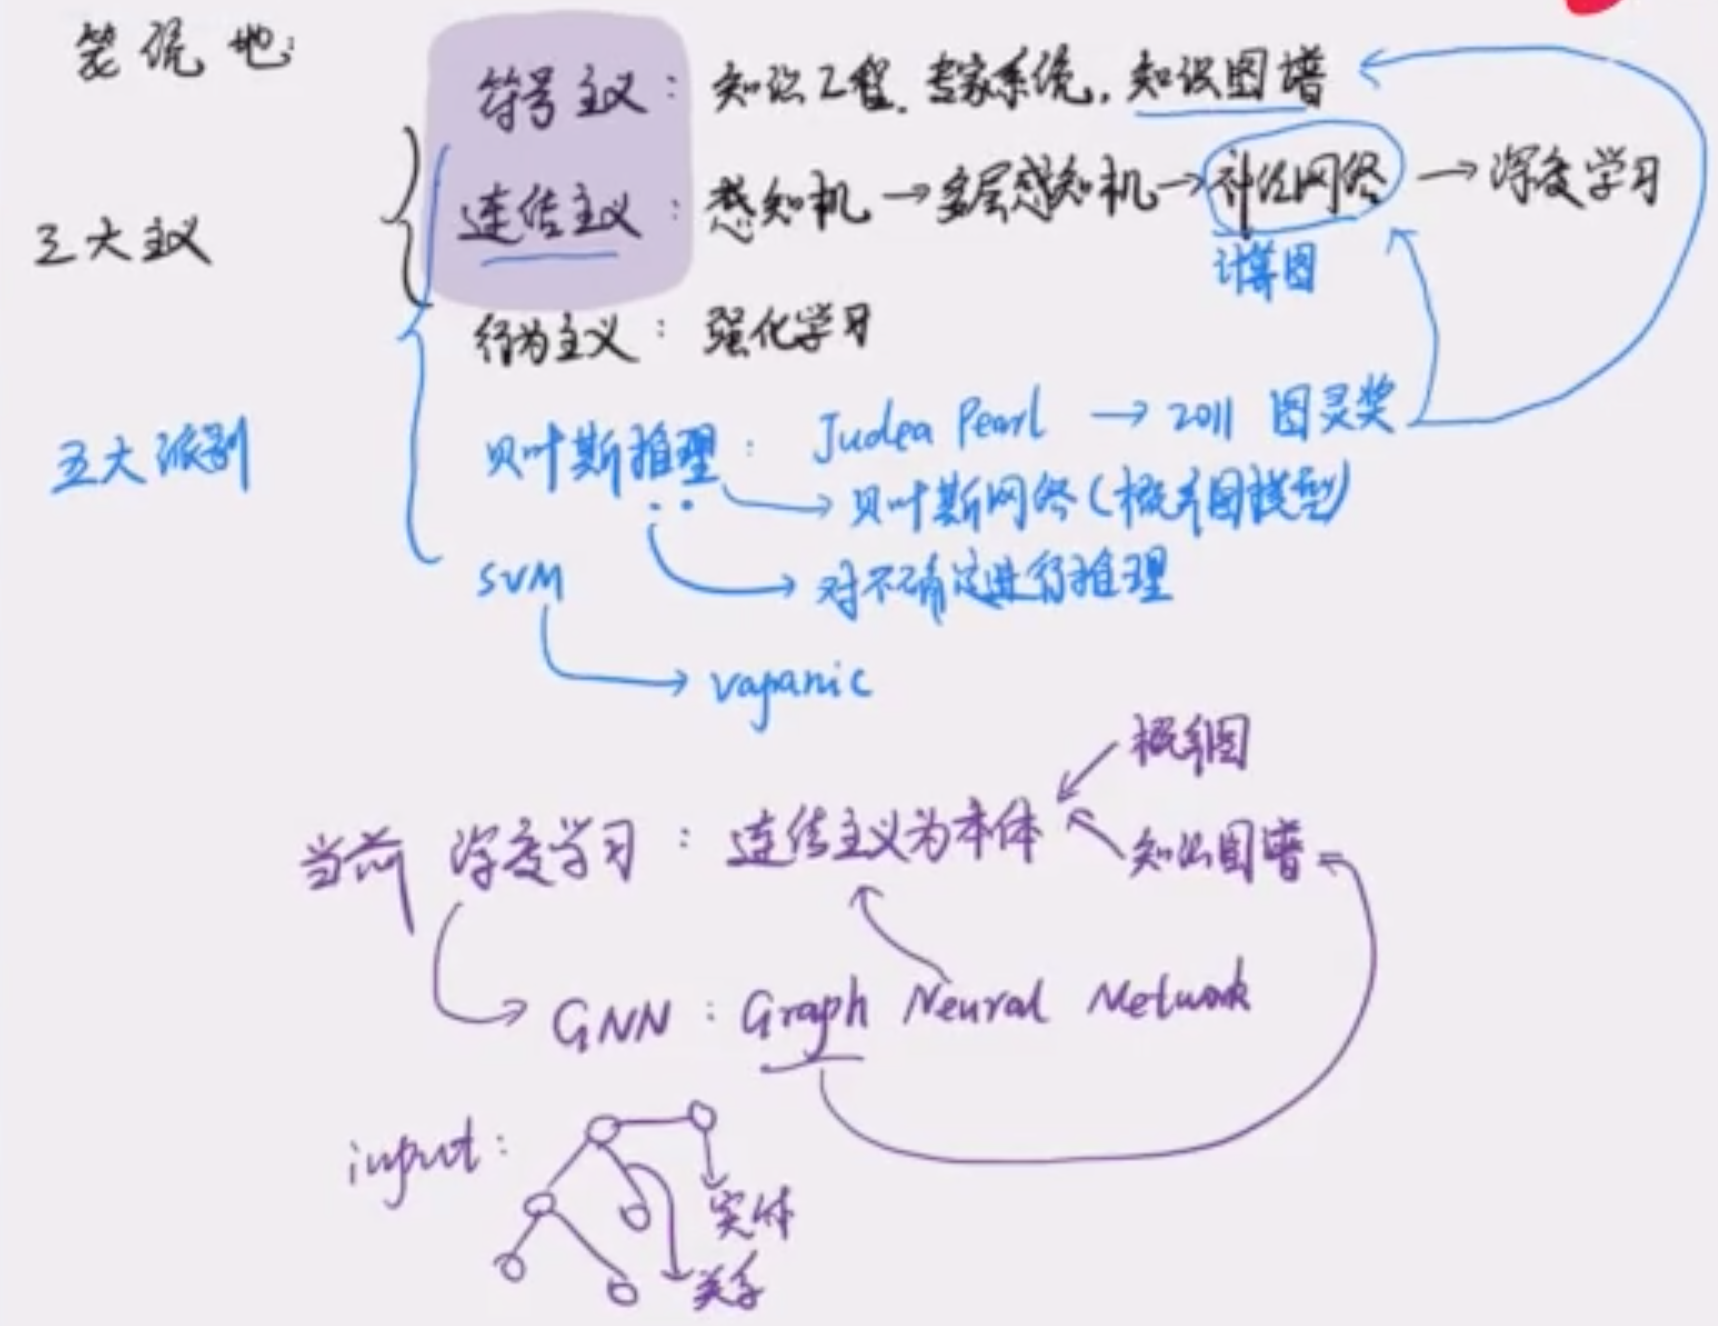 笼统地:
符号主义: 知识工程. 专家系统, 知识图谱
三大主义
连结主义: 感知机→多层感知机→神经网络→深度学习
计算图
行为主义: 强化学习
五大派别
贝叶斯推理: Judea Pearl → 2011 图灵奖
→ 贝叶斯网络(概率图模型)
→ 对不确定进行推理
SVM
→ vapanic
概率图
当前 深度学习: 连结主义为本体
知识图谱
→ GNN: Graph Neural Network
input:
实体
关系